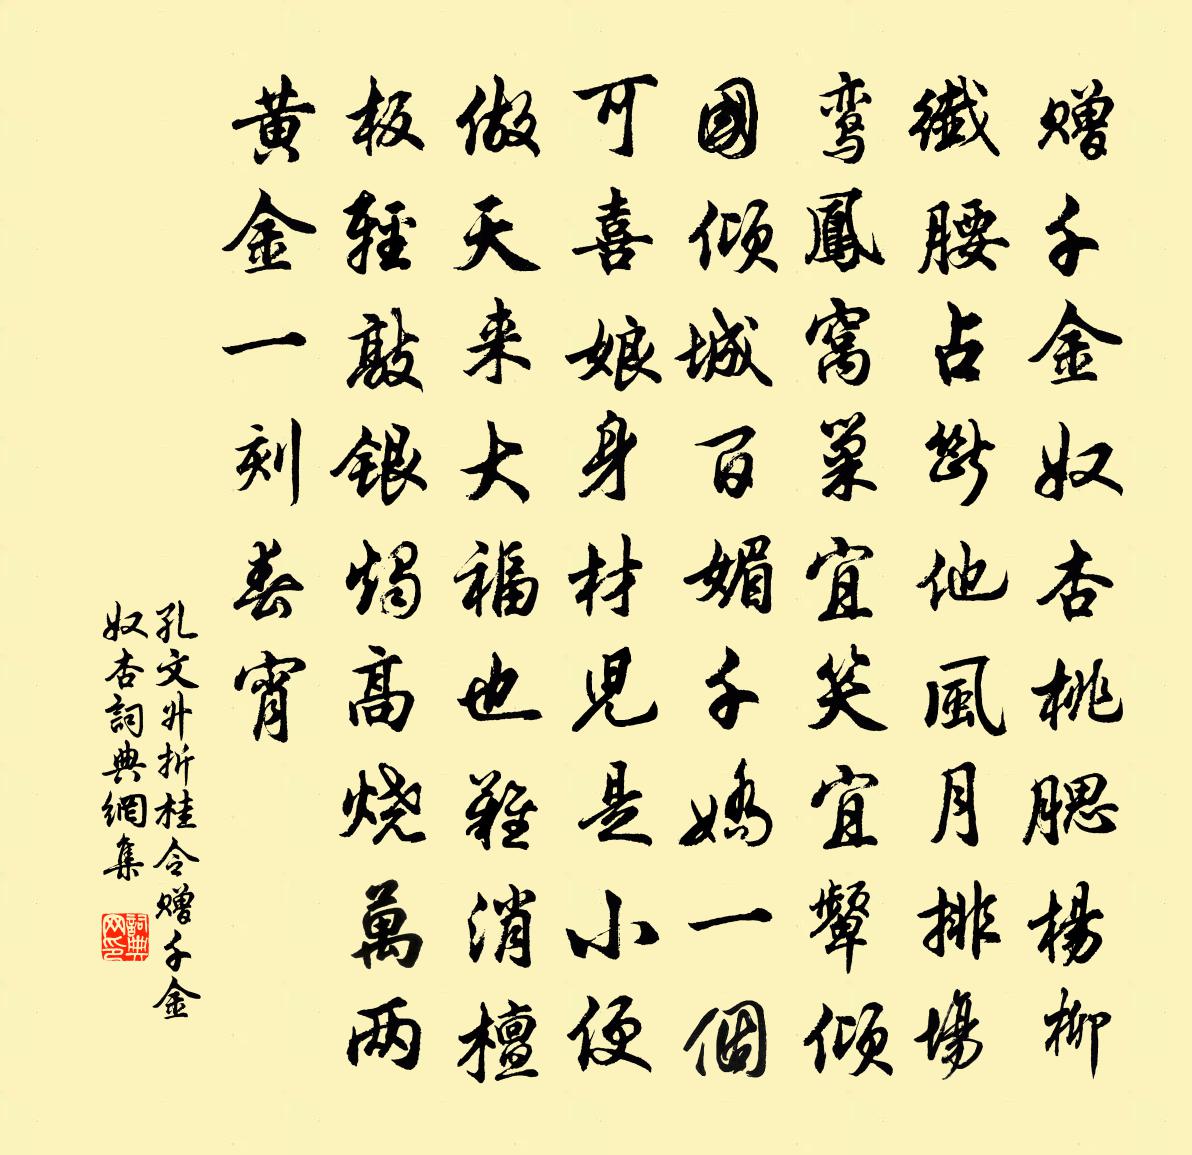 赠千金奴杏桃腮楊柳
纖腰占斷他風月排場
鸾鳳窩巢宜笑宜顰傾
國傾城百媚千嬌一個
可喜娘身材兒是小便
做天来大福也難消檀
板輕敲銀燭高烧萬两
黄金一刻春宵
孔文升折桂令赠千金
奴杏詞典網集
詞典
网印